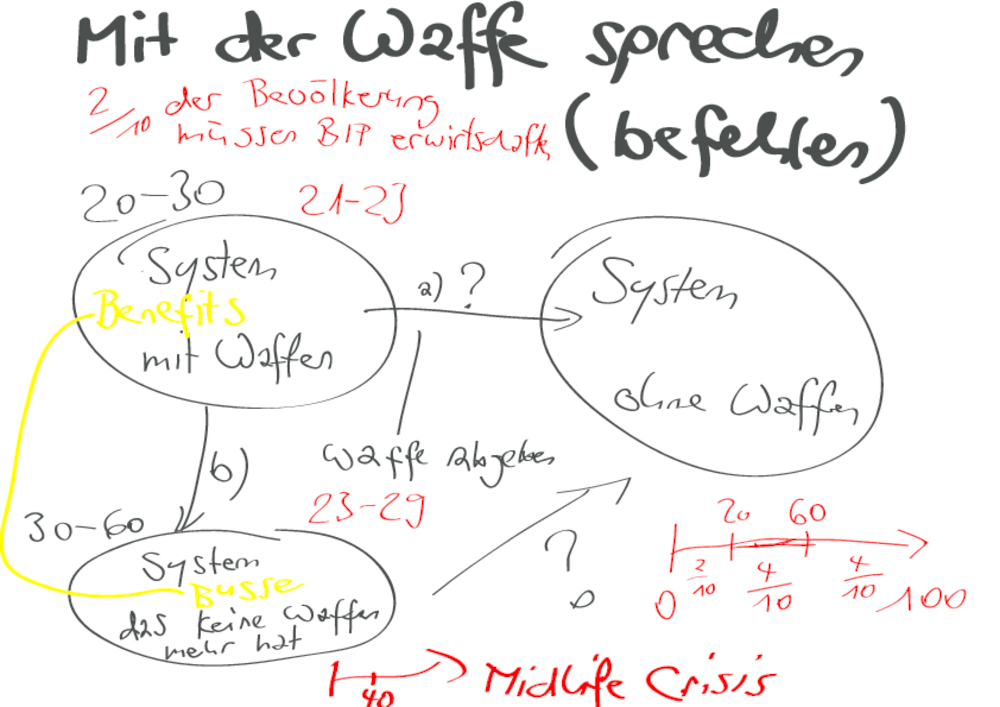 Mit der Waffe sprechen
(befehlen)
2/10 der Bevölkerung
müssen BIP erwirtschaften
20-30
21-23
System
Benefits
mit Waffen
a) ?
System
ohne Waffen
b)
Waffe abgeben
23-29
30-60
System
Busse
das keine Waffen
mehr hat
?
20 60
2/10 4/10 4/10
0 100
40
Midlife Crisis